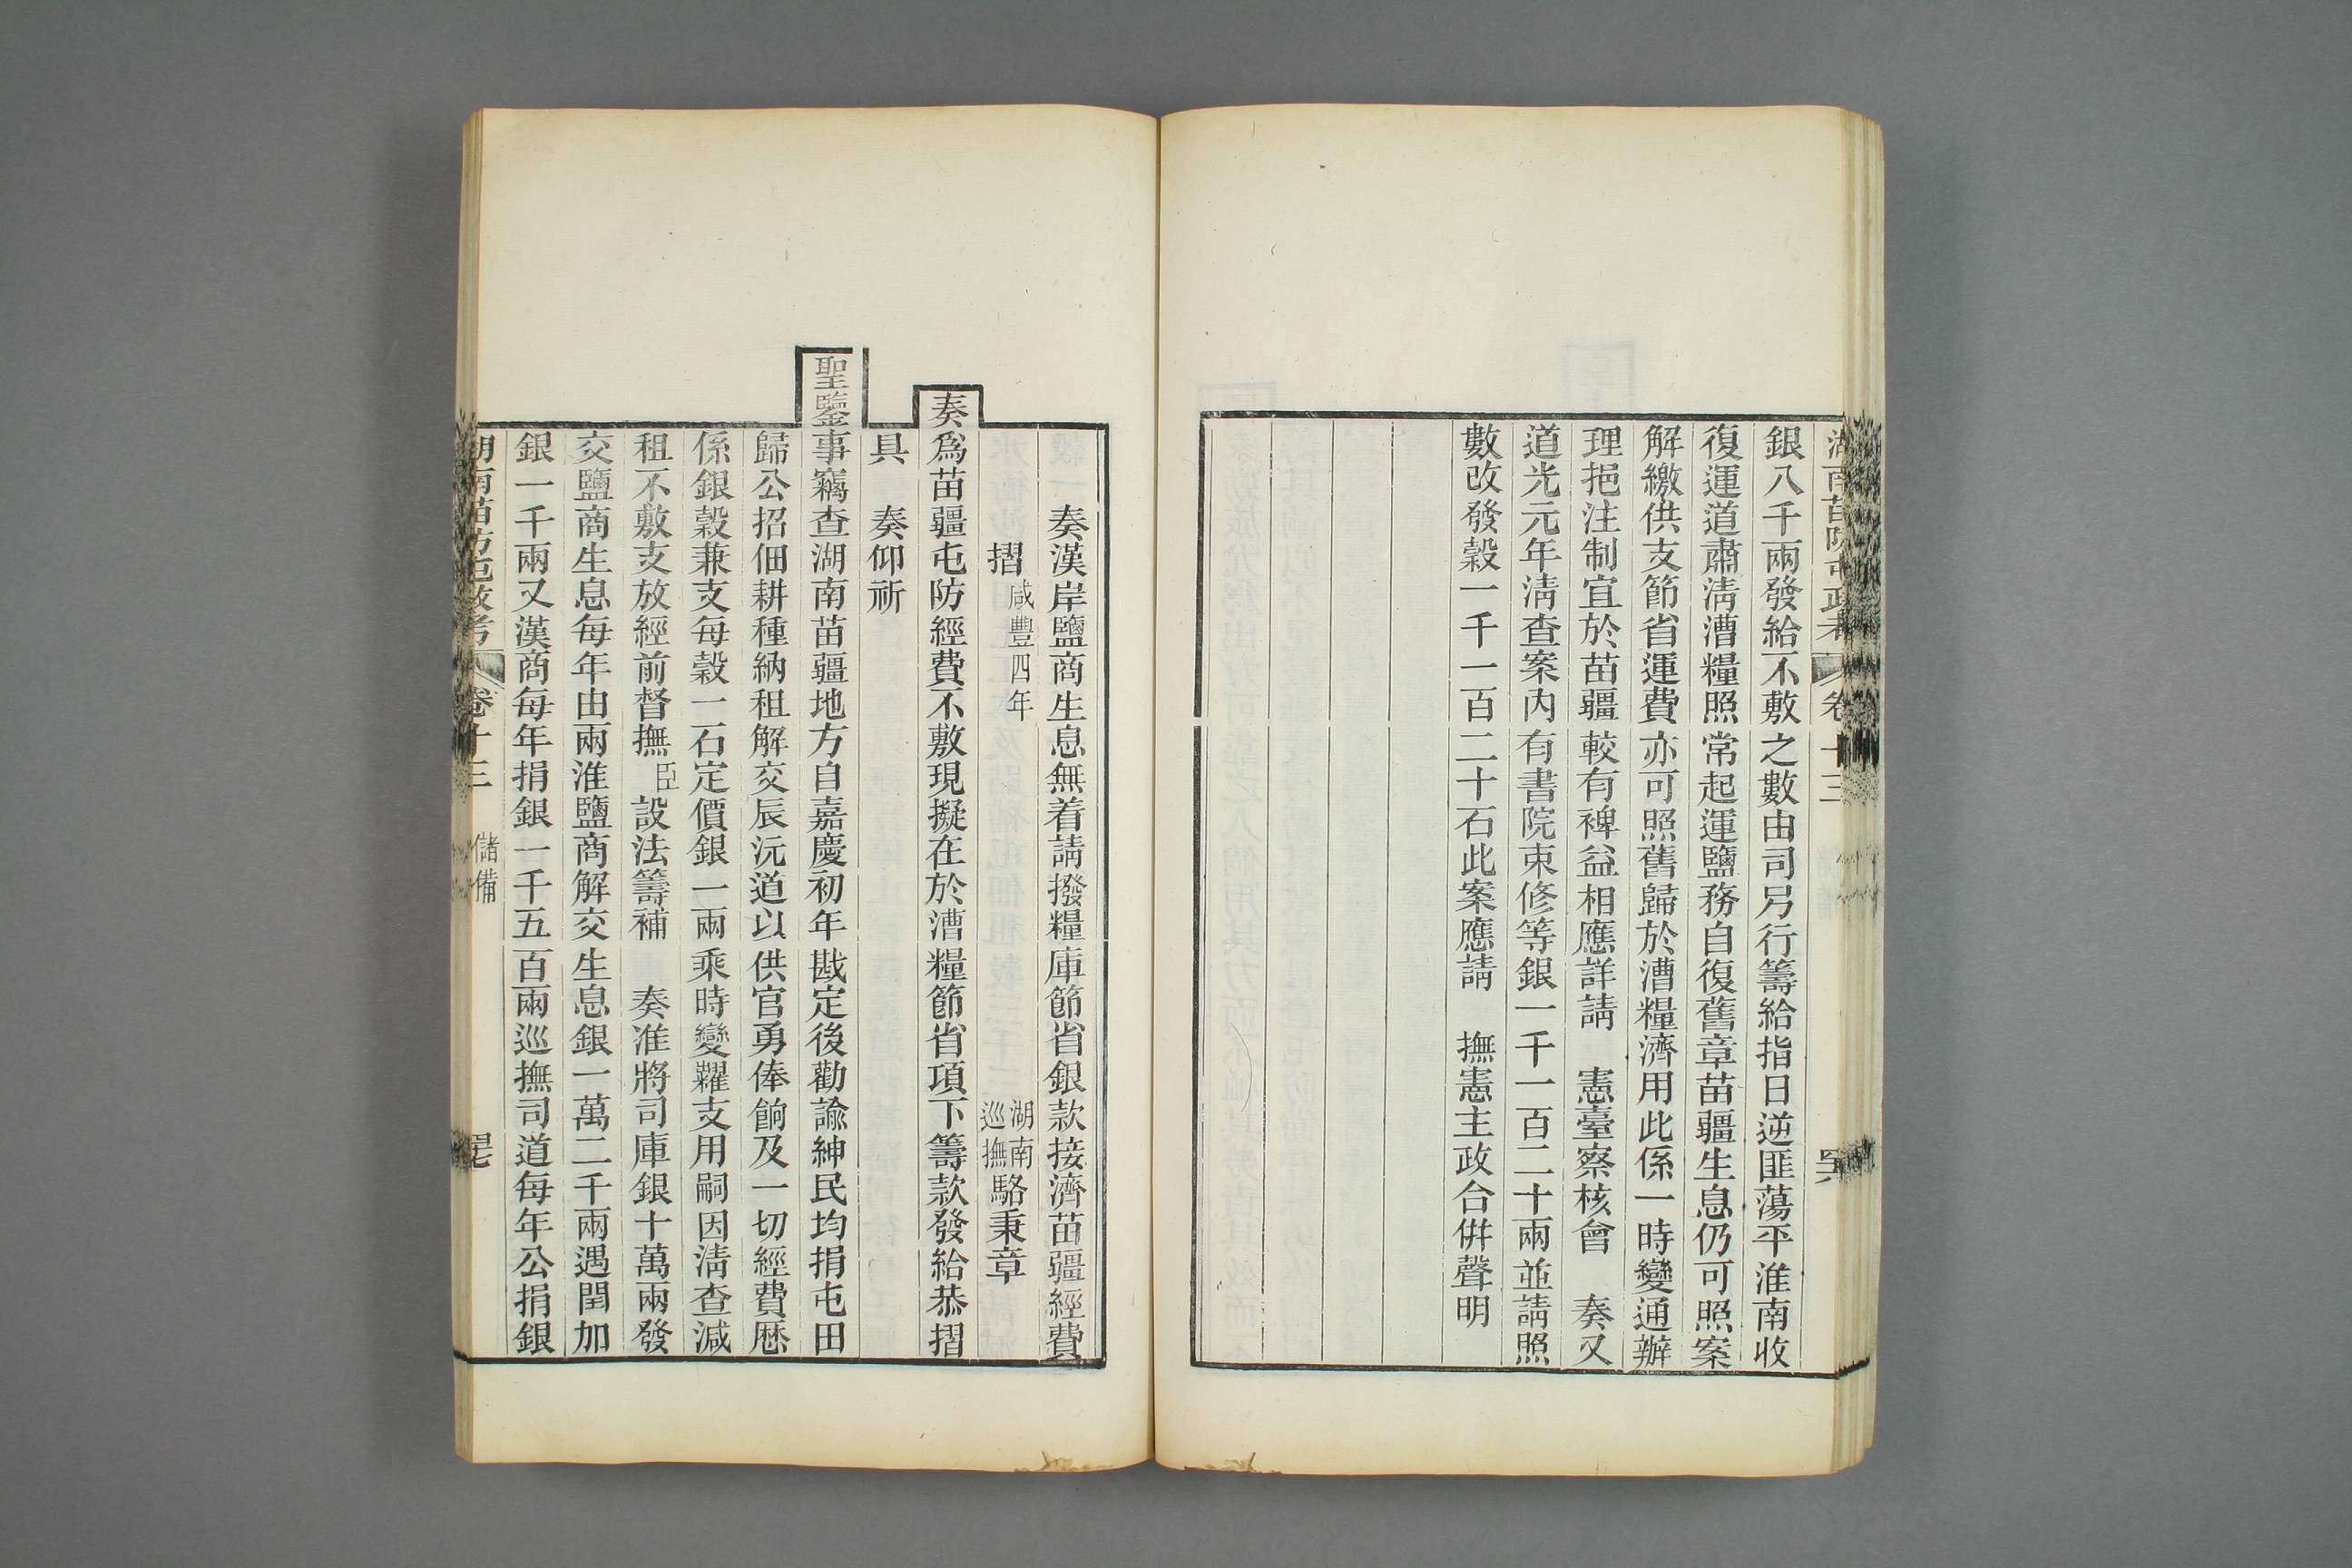 湖南苗防屯政考 卷十三
銀八千兩發給不敷之數由司另行籌給指日逆匪蕩平淮南收
復運道肅淸漕糧照常起運鹽務自復舊章苗疆生息仍可照案
解繳供支節省運費亦可照舊歸於漕糧濟用此係一時變通辦
理挹注制宜於苗疆較有裨益相應詳請 憲臺察核會 奏又
道光元年淸查案內有書院束修等銀一千一百二十兩並請照
數改發穀一千一百二十石此案應請 撫憲主政合倂聲明
奏漢岸鹽商生息無着請撥糧庫節省銀款接濟苗疆經費
摺 咸豐四年 湖南巡撫 駱秉章
奏爲苗疆屯防經費不敷現擬在於漕糧節省項下籌款發給恭摺
具 奏仰祈
聖鑒事竊查湖南苗疆地方自嘉慶初年戡定後勸諭紳民均捐屯田
歸公招佃耕種納租解交辰沅道以供官勇俸餉及一切經費歷
係銀穀兼支每穀一石定價銀一兩乘時變糶支用嗣因淸查減
租不敷支放經前督撫臣設法籌補 奏准將司庫銀十萬兩發
交鹽商生息每年由兩淮鹽商解交生息銀一萬二千兩遇閏加
銀一千兩又漢商每年捐銀一千五百兩巡撫司道每年公捐銀
湖南苗防屯政考 卷十三 儲備